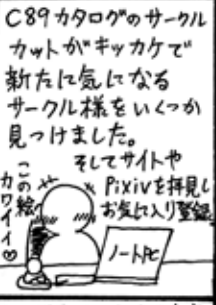 C89カタログのサークル
カットがキッカケで
新たに気になる
サークル様をいくつか
見つけました。
そしてサイトや
Pixivを拝見し
お気に入り登録
この絵
カワイイ♡
ノートPC